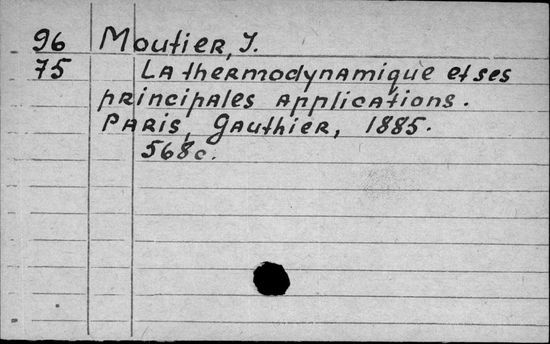 96 Moutier, J.
75 La thermodynamique et ses
principales applications.
Paris, Gauthier, 1885.
568c.